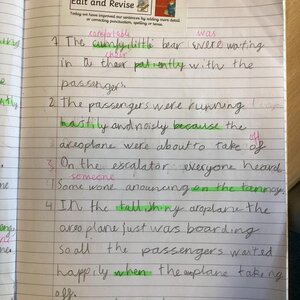 Edit and Revise
Today we have improved our sentences by adding more detail
or correcting punctuation, spelling or tense.
comfortable was
1. The cumfy, little bear were wating
chair
in a their patiently with the
passengers.
2. The passengers were running
hastily and noisly because the
off
areoplane were about to take of
3. On the escalator everyone heard
someone
Some wone anouncing on the tannoy.
4 In the tall shiny aroplane the
areoplane just was boarding
so all the passengers waited
happily when the plane taking
off.